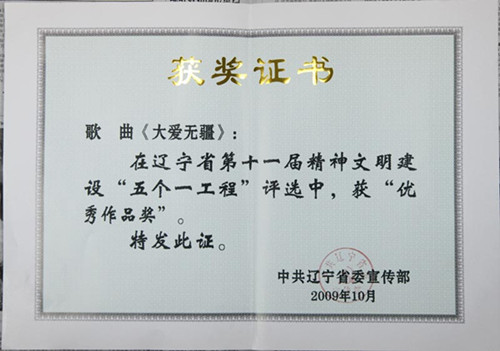 获奖证书
歌 曲《大爱无疆》:
在辽宁省第十一届精神文明建
设“五个一工程”评选中，获“优
秀作品奖”。
特发此证。
中共辽宁省委宣传部
2009年10月